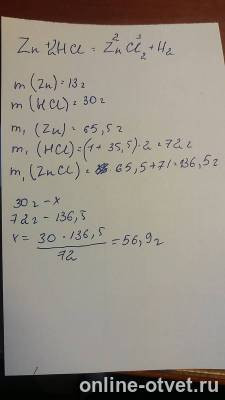 Zn + 2HCl = Zn²Cl₂ + H₂
m (Zn) = 13г
m (HCl) = 30г
m₁ (Zn) = 65,5г
m₁ (HCl) = (1 + 35,5) · 2 = 72г
m₁ (ZnCl) = 65,5 + 71 = 136,5г
30г - x
72г - 136,5
x = 30 · 136,5 / 72 = 56,9г
online-otvet.ru